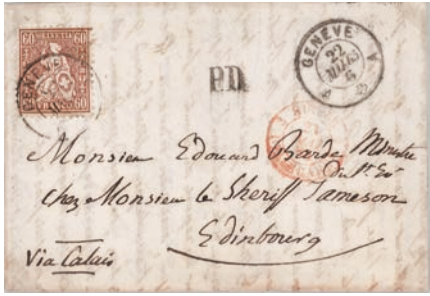 60 HELVETIA 60
60 FRANCO 60
GENÈVE
GENÈVE
22
MARS
P.D.
Monsieur Edouard Barde Ministre
du St Ev
chez Monsieur le Sheriff Jameson
Edinbourg
Via Calais